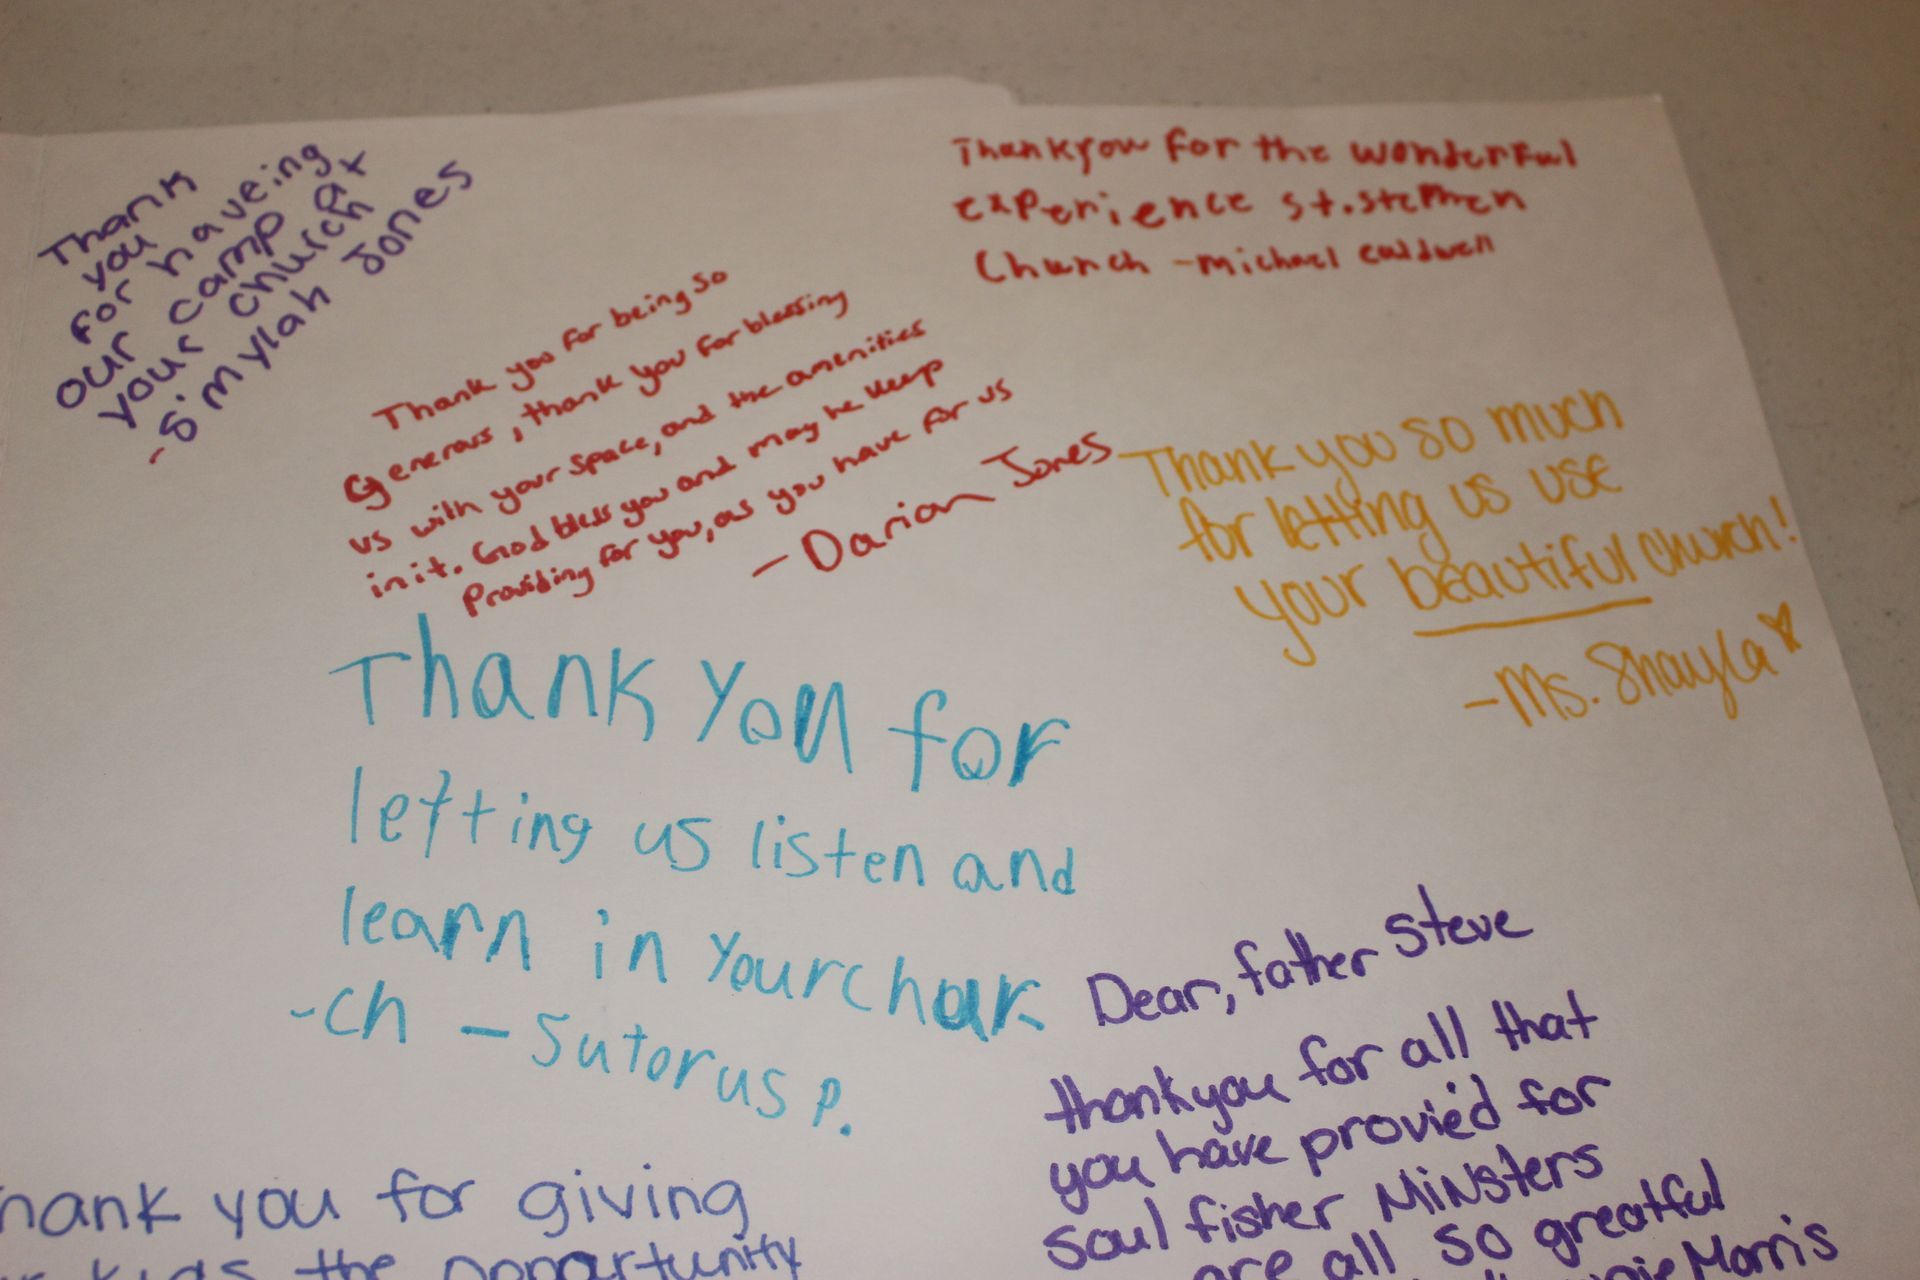 Thank
you
for haveing
our camp at
your church
- S'mylah Jones
Thank you for being so
Generous, thank you for blessing
us with your space, and the amenities
in it. God bless you and may he keep
Providing for you, as you have for us
- Darian Jones
Thankyou for the wonderful
experience st.stephen
Church - Michael caldwell
Thank you so much
for letting us use
your beautiful church!
- Ms. Shayla
Thank you for
letting us listen and
learn in your chur
-ch - Sutorus P.
Dear, father Steve
thankyou for all that
you have provied for
soul fisher Minsters
are all so greatful
Morris
hank you for giving
kids the opportunity